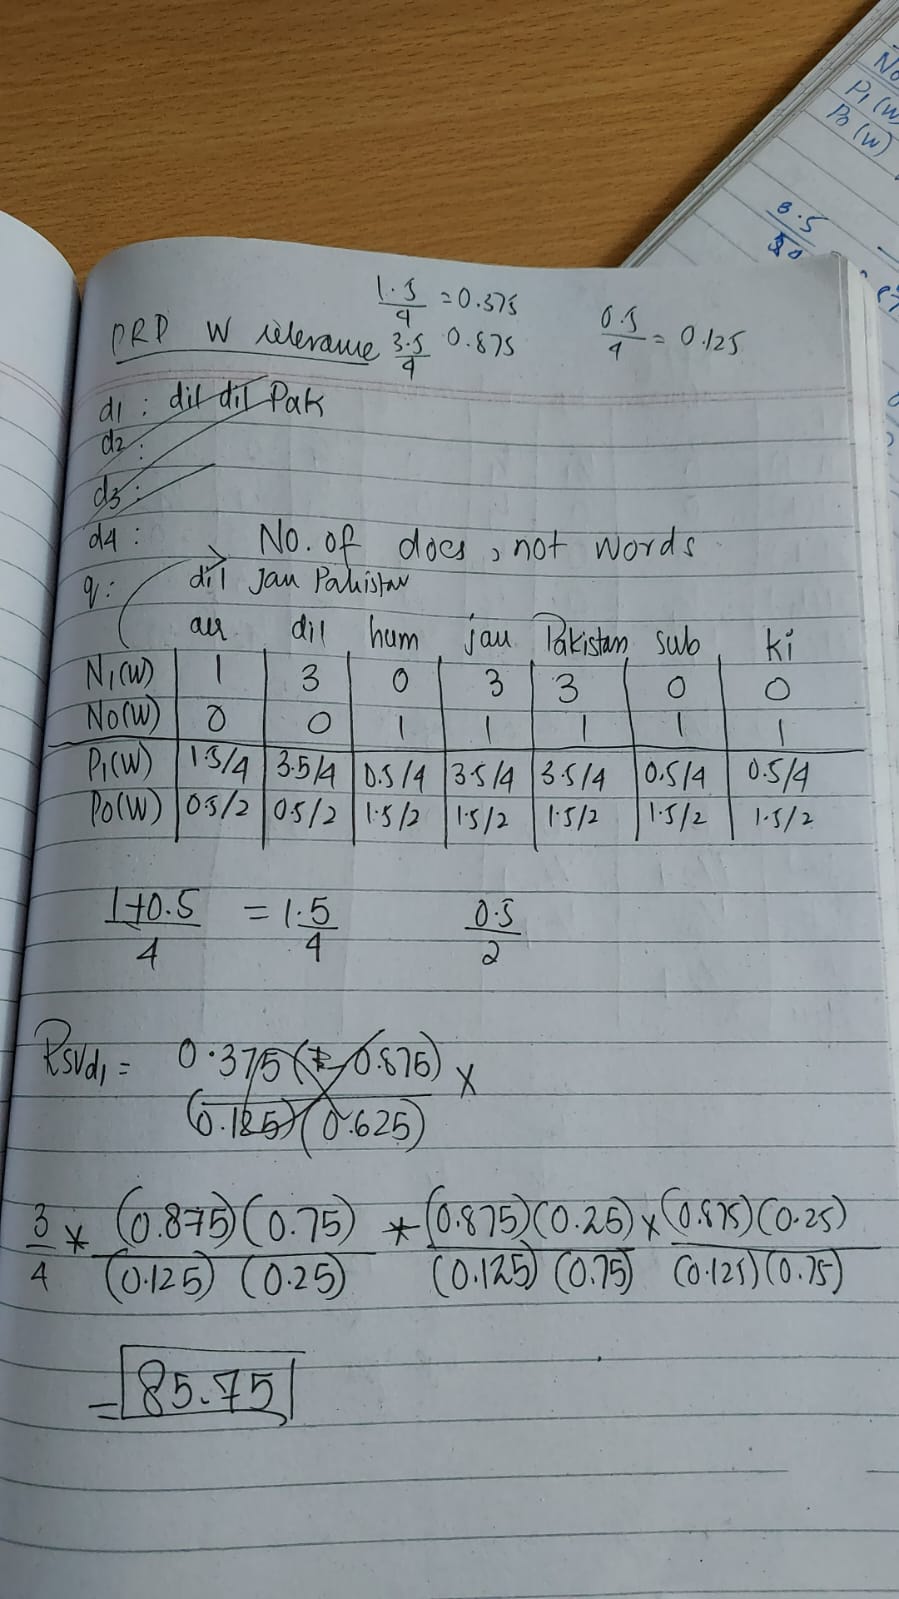 1.5/4 = 0.375
PRP W relevance 3.5/4 0.875 0.5/4 = 0.125
d1 : dil dil Pak
d2 :
d3 :
d4 :
No. of docs, not words
q : dil Jan Pakistan
aur dil hum jan Pakistan sub ki
N1(W) 1 3 0 3 3 0 0
N0(W) 0 0 1 1 1 1 1
P1(W) 1.5/4 3.5/4 0.5/4 3.5/4 3.5/4 0.5/4 0.5/4
P0(W) 0.5/2 0.5/2 1.5/2 1.5/2 1.5/2 1.5/2 1.5/2
1+0.5/4 = 1.5/4 0.5/2
RSVd1 = 0.375 ( 0.875) ×
(0.125)(0.625)
3/4 * (0.875)(0.75)/(0.125)(0.25) * (0.875)(0.25)/(0.125)(0.75) × (0.875)(0.25)/(0.125)(0.75)
= 85.75
P1(W
P0(W)